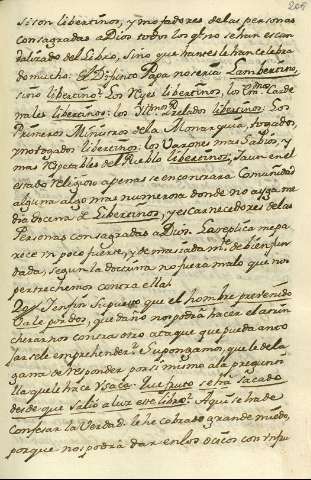 205
si son libertinos, y mofadores de las personas
consagradas a Dios todos los q.e no se han escan
dalizado del Libro, sino que hantes le han celebra
do mucho: el Difunto Papa no seria Lambertino,
sino libertino: Los Reyes libertinos, los Carde
nales libertinos: los Prelados libertinos: Los
Primeros Ministros de la Monarquia, togados,
y no togados libertinos: los Varones mas Sabios, y
mas Respetables del Pueblo libertinos, y aun en el
estado religioso apenas se encontrara Comunidad
alguna algo mas numerosa donde no ayga me
dia docena de Libertinos, y escarnecedores de las
Personas consagradas a Dios. La replica me pa
rece un poco fuerte, y demasiadam.te bien fun
dada, segun la doctrina no fuera malo que nos
pertrechemos contra ella.
Ten por supuesto que el hombre prevenido
Vale por dos, que daño nos podrà hacer el atrin
cherarnos contra otro ataque que pueda anto
jarsele emprehender? Supongamos, que le dè la
gana de responder por si mismo a la pregunta
lla que le hace Vsia: Que fruto se ha sacado
desde que salió a luz ese libro? Aqui se ha de
confesar la Verdad: le he cobrado grande miedo,
porque nos podrà dar en los ocicos con